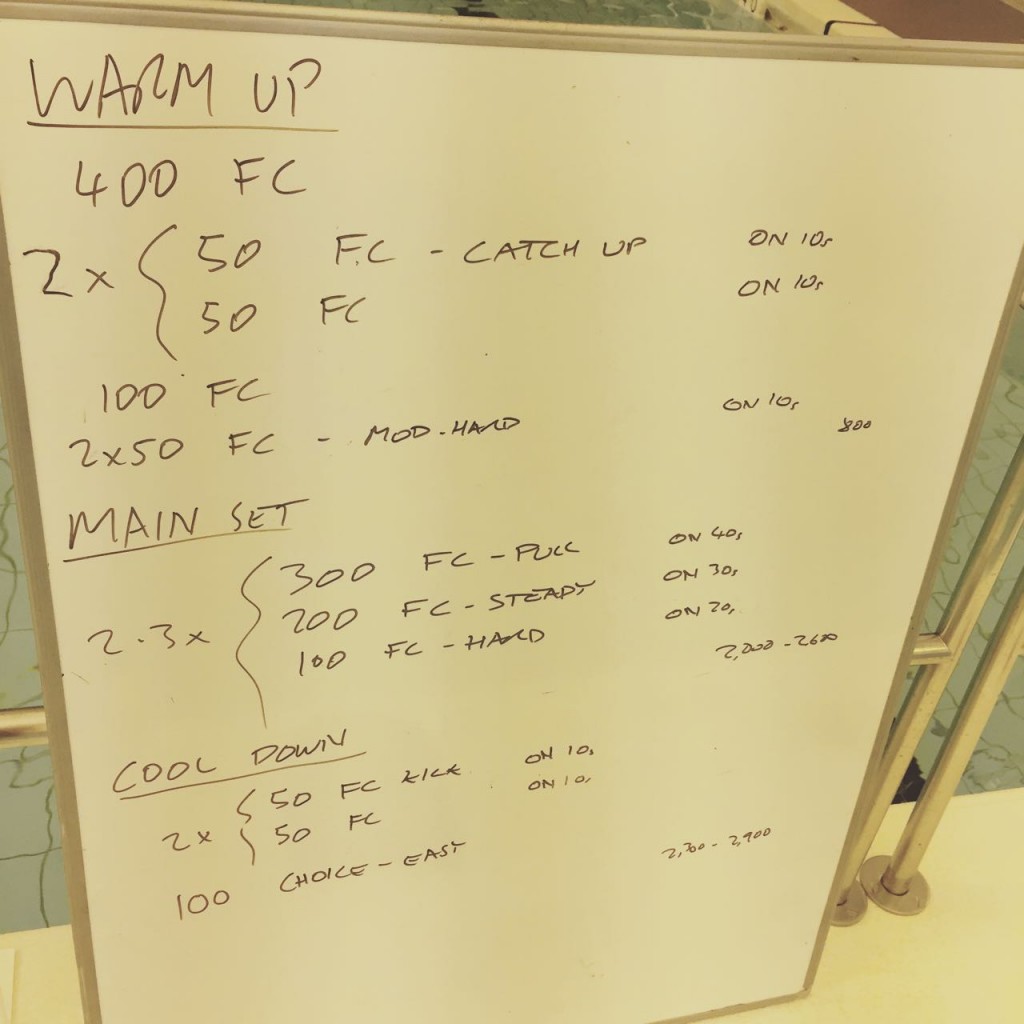 WARM UP
400 FC
2 x { 50 FC - CATCH UP ON 10s
50 FC ON 10s
100 FC
2x50 FC - MOD-HARD ON 10s
800
MAIN SET
2-3x { 300 FC - PULL ON 40s
200 FC - STEADY ON 30s
100 FC - HARD ON 20s
2,000 - 2600
COOL DOWN
2x { 50 FC KICK ON 10s
50 FC ON 10s
100 CHOICE - EASY
2,300 - 2,900